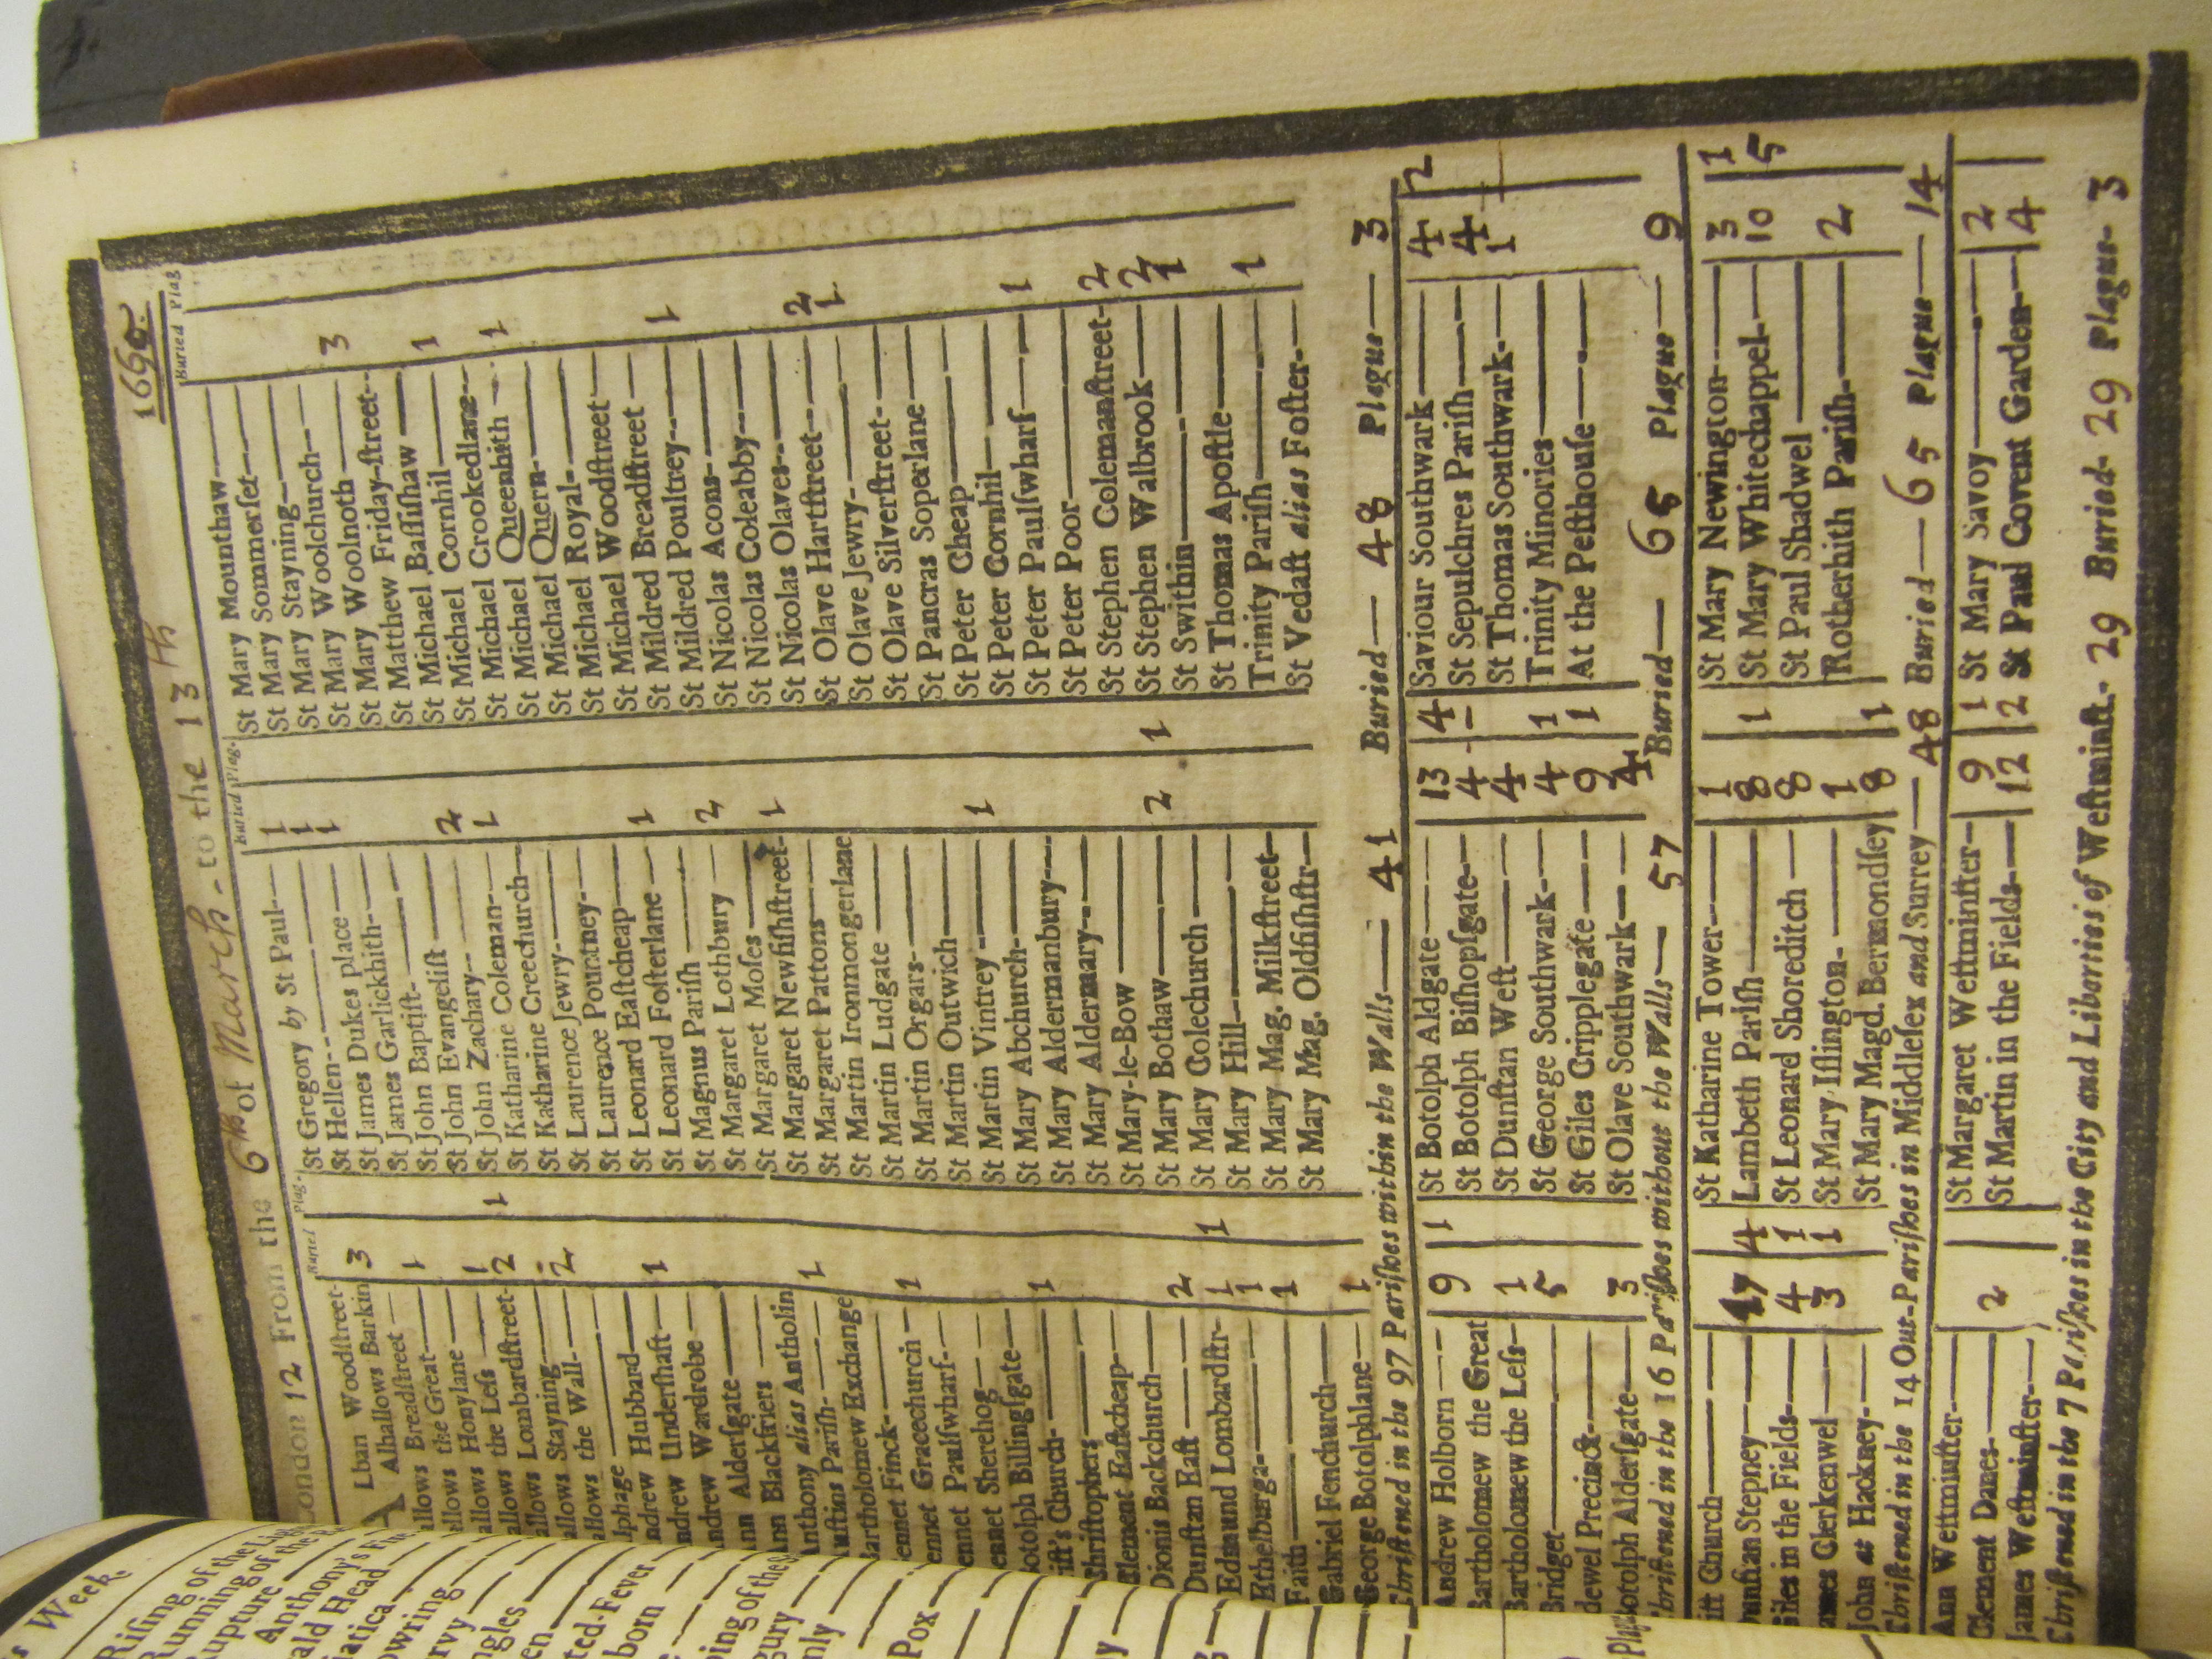 London 12 From the 6th of March - to the 13th 1690.
Buried Plag.
Lban Woodſtreet-
Alhallows Barkin 3
allows Breadſtreet
allows the Great 1
allows Honylane
allows the Leſs 1
allows Lombardſtreet- 2 1
allows Stayning
allows the Wall- 2
lphage
ndrew Hubbard
ndrew Underſhaft 1
ndrew Wardrobe
Ann Alderſgate
Ann Blackfriers
Anthony alias Antholin
Auſtins Pariſh- 1
Bartholomew Exchange
Bennet Finck-
ennet Gracechurch 1
ennet Paulſwharf-
ennet Sherehog
otolph Billingſgate
riſt's Church- 1
Chriſtophers
Clement Eaſtcheap
Dionis Backchurch
Dunſtan Eaſt 2
Edmund Lombardſtr- 1 1
Ethelburga 1
Faith 1
Gabriel Fenchurch
George Botolphlane 1
Buried Plag.
St Gregory by St Paul 1
St Hellen 1
St James Dukes place 1
St James Garlickhith-
St John Baptiſt-
St John Evangeliſt
St John Zachary 2
St Katharine Coleman- 1
St Katharine Creechurch
St Laurence Jewry-
St Laurence Pountney-
St Leonard Eaſtcheap
St Leonard Foſterlane 1
St Magnus Pariſh
St Margaret Lothbury 2
St Margaret Moſes
St Margaret Newfiſhſtreet- 1
St Margaret Pattons
St Martin Ironmongerlane
St Martin Ludgate
St Martin Orgars-
St Martin Outwich
St Martin Vintrey 1
St Mary Abchurch-
St Mary Aldermanbury
St Mary Aldermary
St Mary-le-Bow
St Mary Bothaw
St Mary Colechurch 2 1
St Mary Hill
St Mary Mag. Milkſtreet
St Mary Mag. Oldfiſhſtr
Buried Plag
St Mary Mounthaw
St Mary Sommerſet
St Mary Stayning
St Mary Woolchurch
St Mary Woolnoth 3
St Matthew Friday-ſtreet
St Michael Baſſiſhaw
St Michael Cornhil 1
St Michael Crookedlane
St Michael Queenhith 1
St Michael Quern-
St Michael Royal-
St Michael Woodſtreet
St Mildred Breadſtreet
St Mildred Poultrey 1
St Nicolas Acons-
St Nicolas Coleabby
St Nicolas Olaves-
St Olave Hartſtreet 2
St Olave Jewry- 1
St Olave Silverſtreet-
St Pancras Soperlane
St Peter Cheap
St Peter Cornhil
St Peter Paulſwharf 1
St Peter Poor
St Stephen Colemanſtreet- 2
St Stephen Walbrook 2
St Swithin 1
St Thomas Apoſtle
Trinity Pariſh 1
St Vedaſt alias Foſter-
Chriſtened in the 97 Pariſhes within the Walls 41 Buried 48 Plague 3
Andrew Holborn 9 1
Bartholomew the Great
Bartholomew the Leſs 1
Bridget 5
dewel Precinct
Botolph Alderſgate 3
St Botolph Aldgate 13 4
St Botolph Biſhopſgate 4
St Dunſtan Weſt 4
St George Southwark 4 1
St Giles Cripplegate 9 1
St Olave Southwark 4
Saviour Southwark 4 2
St Sepulchres Pariſh 4
St Thomas Southwark 1
Trinity Minories
At the Peſthouſe
Chriſtened in the 16 Pariſhes without the Walls 57 Buried 65 Plague 9
iſt Church
Dunſtan Stepney 17 4
iles in the Fields 4 1
ames Clerkenwel 3 1
John at Hackney-
St Katharine Tower 1
Lambeth Pariſh 8 1
St Leonard Shoreditch 8
St Mary Iſlington- 1
St Mary Magd. Bermondſey 8 1
St Mary Newington 3 1
St Mary Whitechappel 10 5
St Paul Shadwel
Rotherhith Pariſh 2
Chriſtened in the 14 Out-Pariſhes in Middleſex and Surrey 48 Buried 65 Plague 14
Ann Weſtminſter
Clement Danes 2
James Weſtminſter
St Margaret Weſtminſter 9 1
St Martin in the Fields 12 2
St Mary Savoy 2
St Paul Covent Garden 4
Chriſtened in the 7 Pariſhes in the City and Liberties of Weſtminſt. 29 Buried 29 Plague 3
s Week.
Riſing of the Lig
Running of the R
Rupture
Anthony's Fire
ald Head
iatica
owring
rvy
ngles
een
ted-Fever
born
ping of the S
gury
nly
Pox